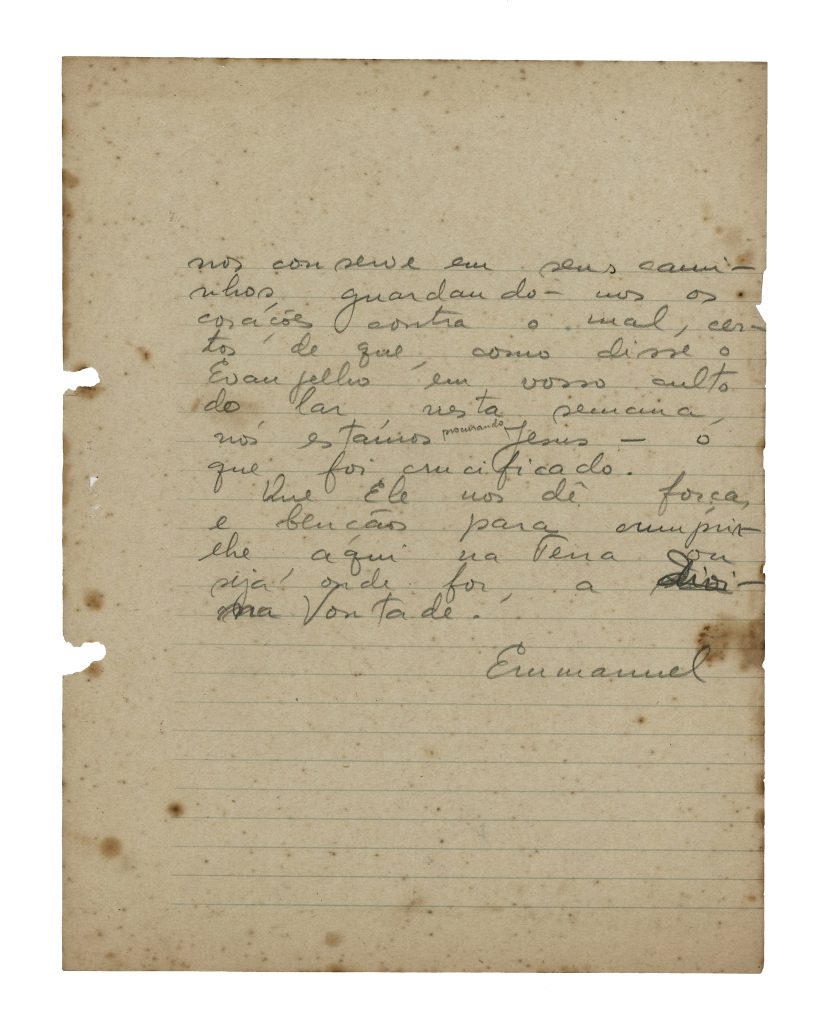 nos conserve em seus cami-
nhos, guardando-nos os
corações contra o mal, cer-
tos de que, como disse o
Evangelho em vosso culto
do lar nesta semana,
nós estamos procurando Jesus - o
que foi crucificado.
Que Ele nos dê força,
e bençãos para cumprir-
lhe aqui na Terra ou
seja onde for, a divi-
na Vontade.
Emmanuel